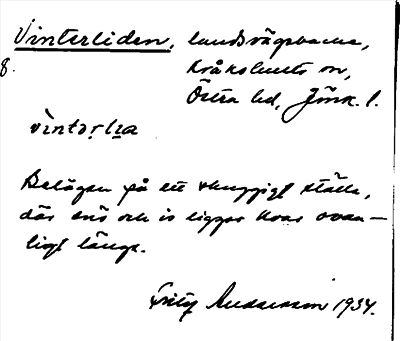 Vinterliden, landsvägsbacke,
8. Kråkshults sn,
Östra hd, Jönk. l.
vìntərlıa
Belägen på ett skuggigt ställe,
där snö och is ligger kvar ovan-
ligt länge.
Fritz Andersson 1934.